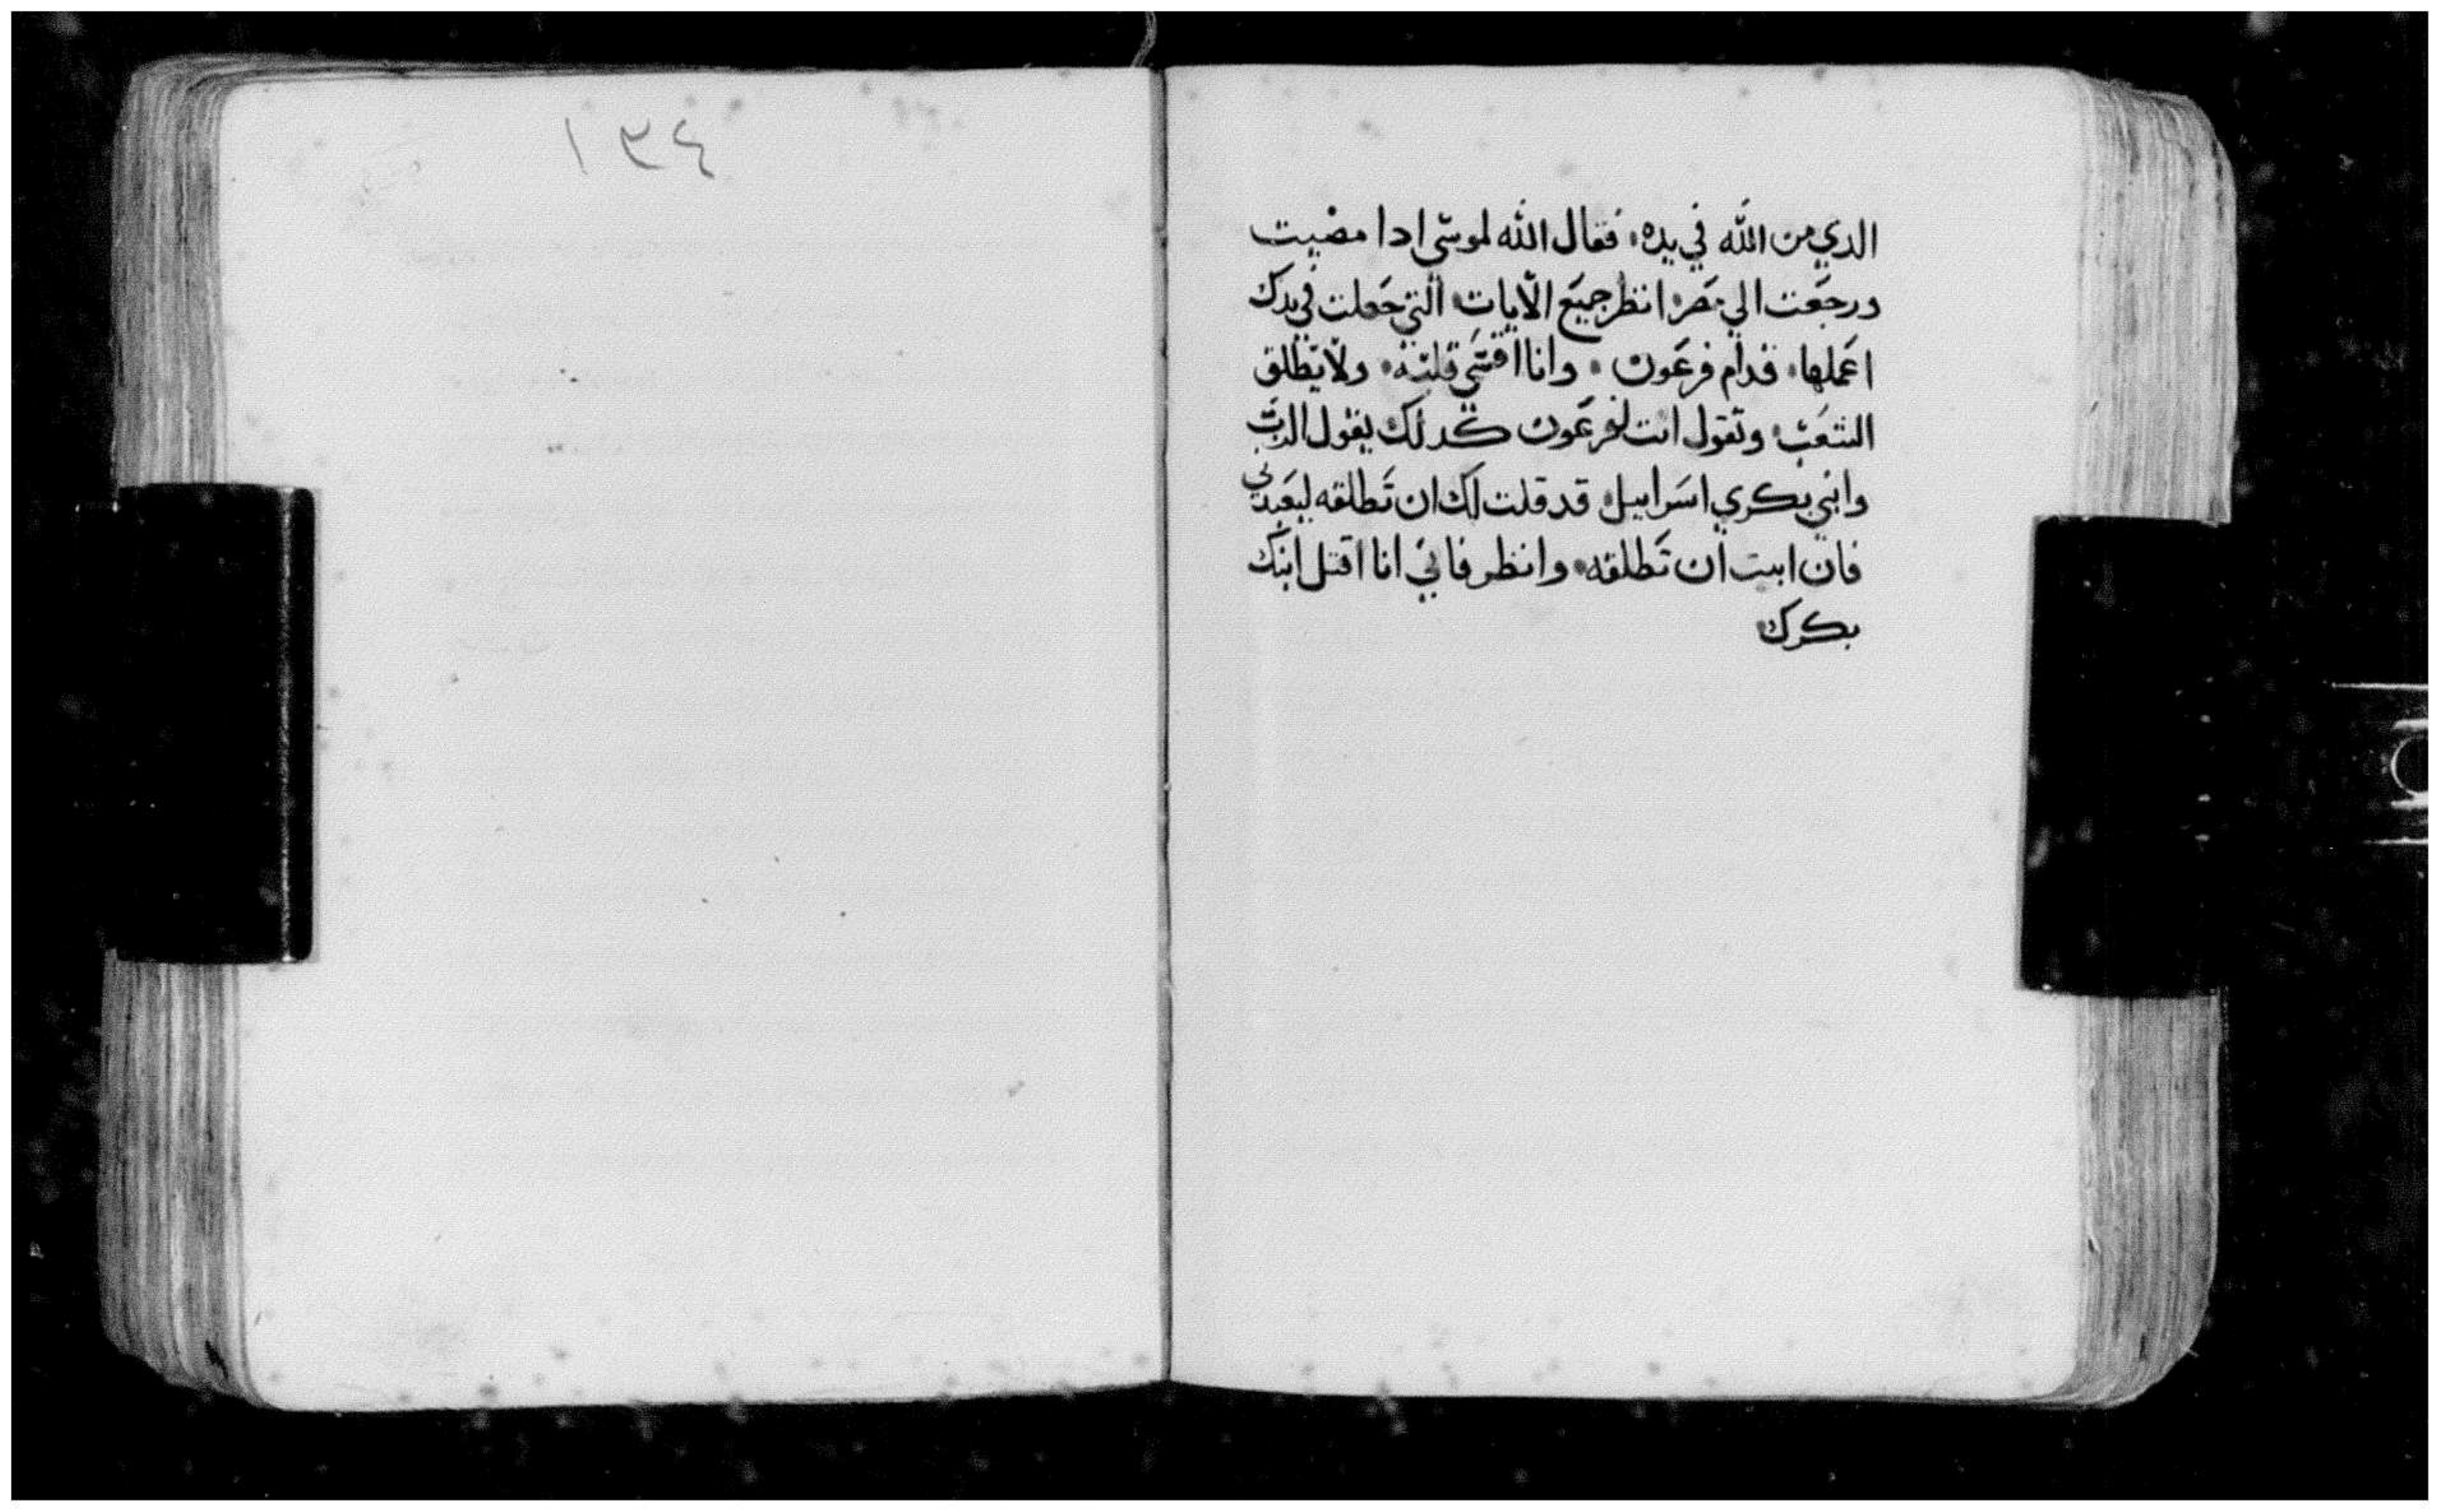 الدي من الله في يده، فقال الله لموسي ادا مضيت
ورجعت الي مصر، انظر جميع الآيات، التي جعلت في يدك
اعملها، قدام فرعون، وانا اقسي قلبه، ولا يطلق
الشعب، وتقول انت لفرعون كدلك يقول الرب
وابني بكري اسراييل، قد قلت لك ان تطلقه ليعبدني
فان ابيت ان تطلقه، وانظر فاني انا اقتل ابنك
بكرك،
١٣٤